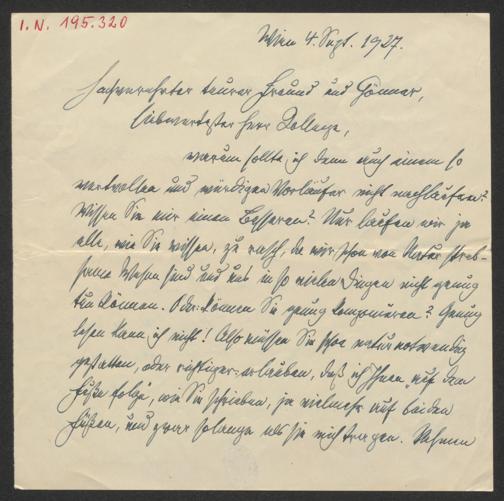 I. N. 195.320
Wien 4. Sept. 1927.
Hochverehrter teurer Freund und Gönner,
liebwertester Herr Kollege,
warum sollte ich denn auch einem so
wertvollen und würdigen Vorläufer nicht nachlaufen?
Wissen Sie mir einen Besseren? Nur laufen wir ja
alle, wie Sie wissen, zu rasch, da wir schon von Natur streb-
same Wesen sind und uns in so vielen Dingen nicht genug
tun können. Oder können Sie genug komponieren? Genug
lesen kann ich nicht! Also müssen Sie schon naturnotwendig
gestatten, oder richtiger: erlauben, daß ich Ihnen auf dem
Fuße folge, wie Sie schrieben, ja vielmehr auf beiden
Füßen, und zwar solange als sie mich tragen. Nehmen